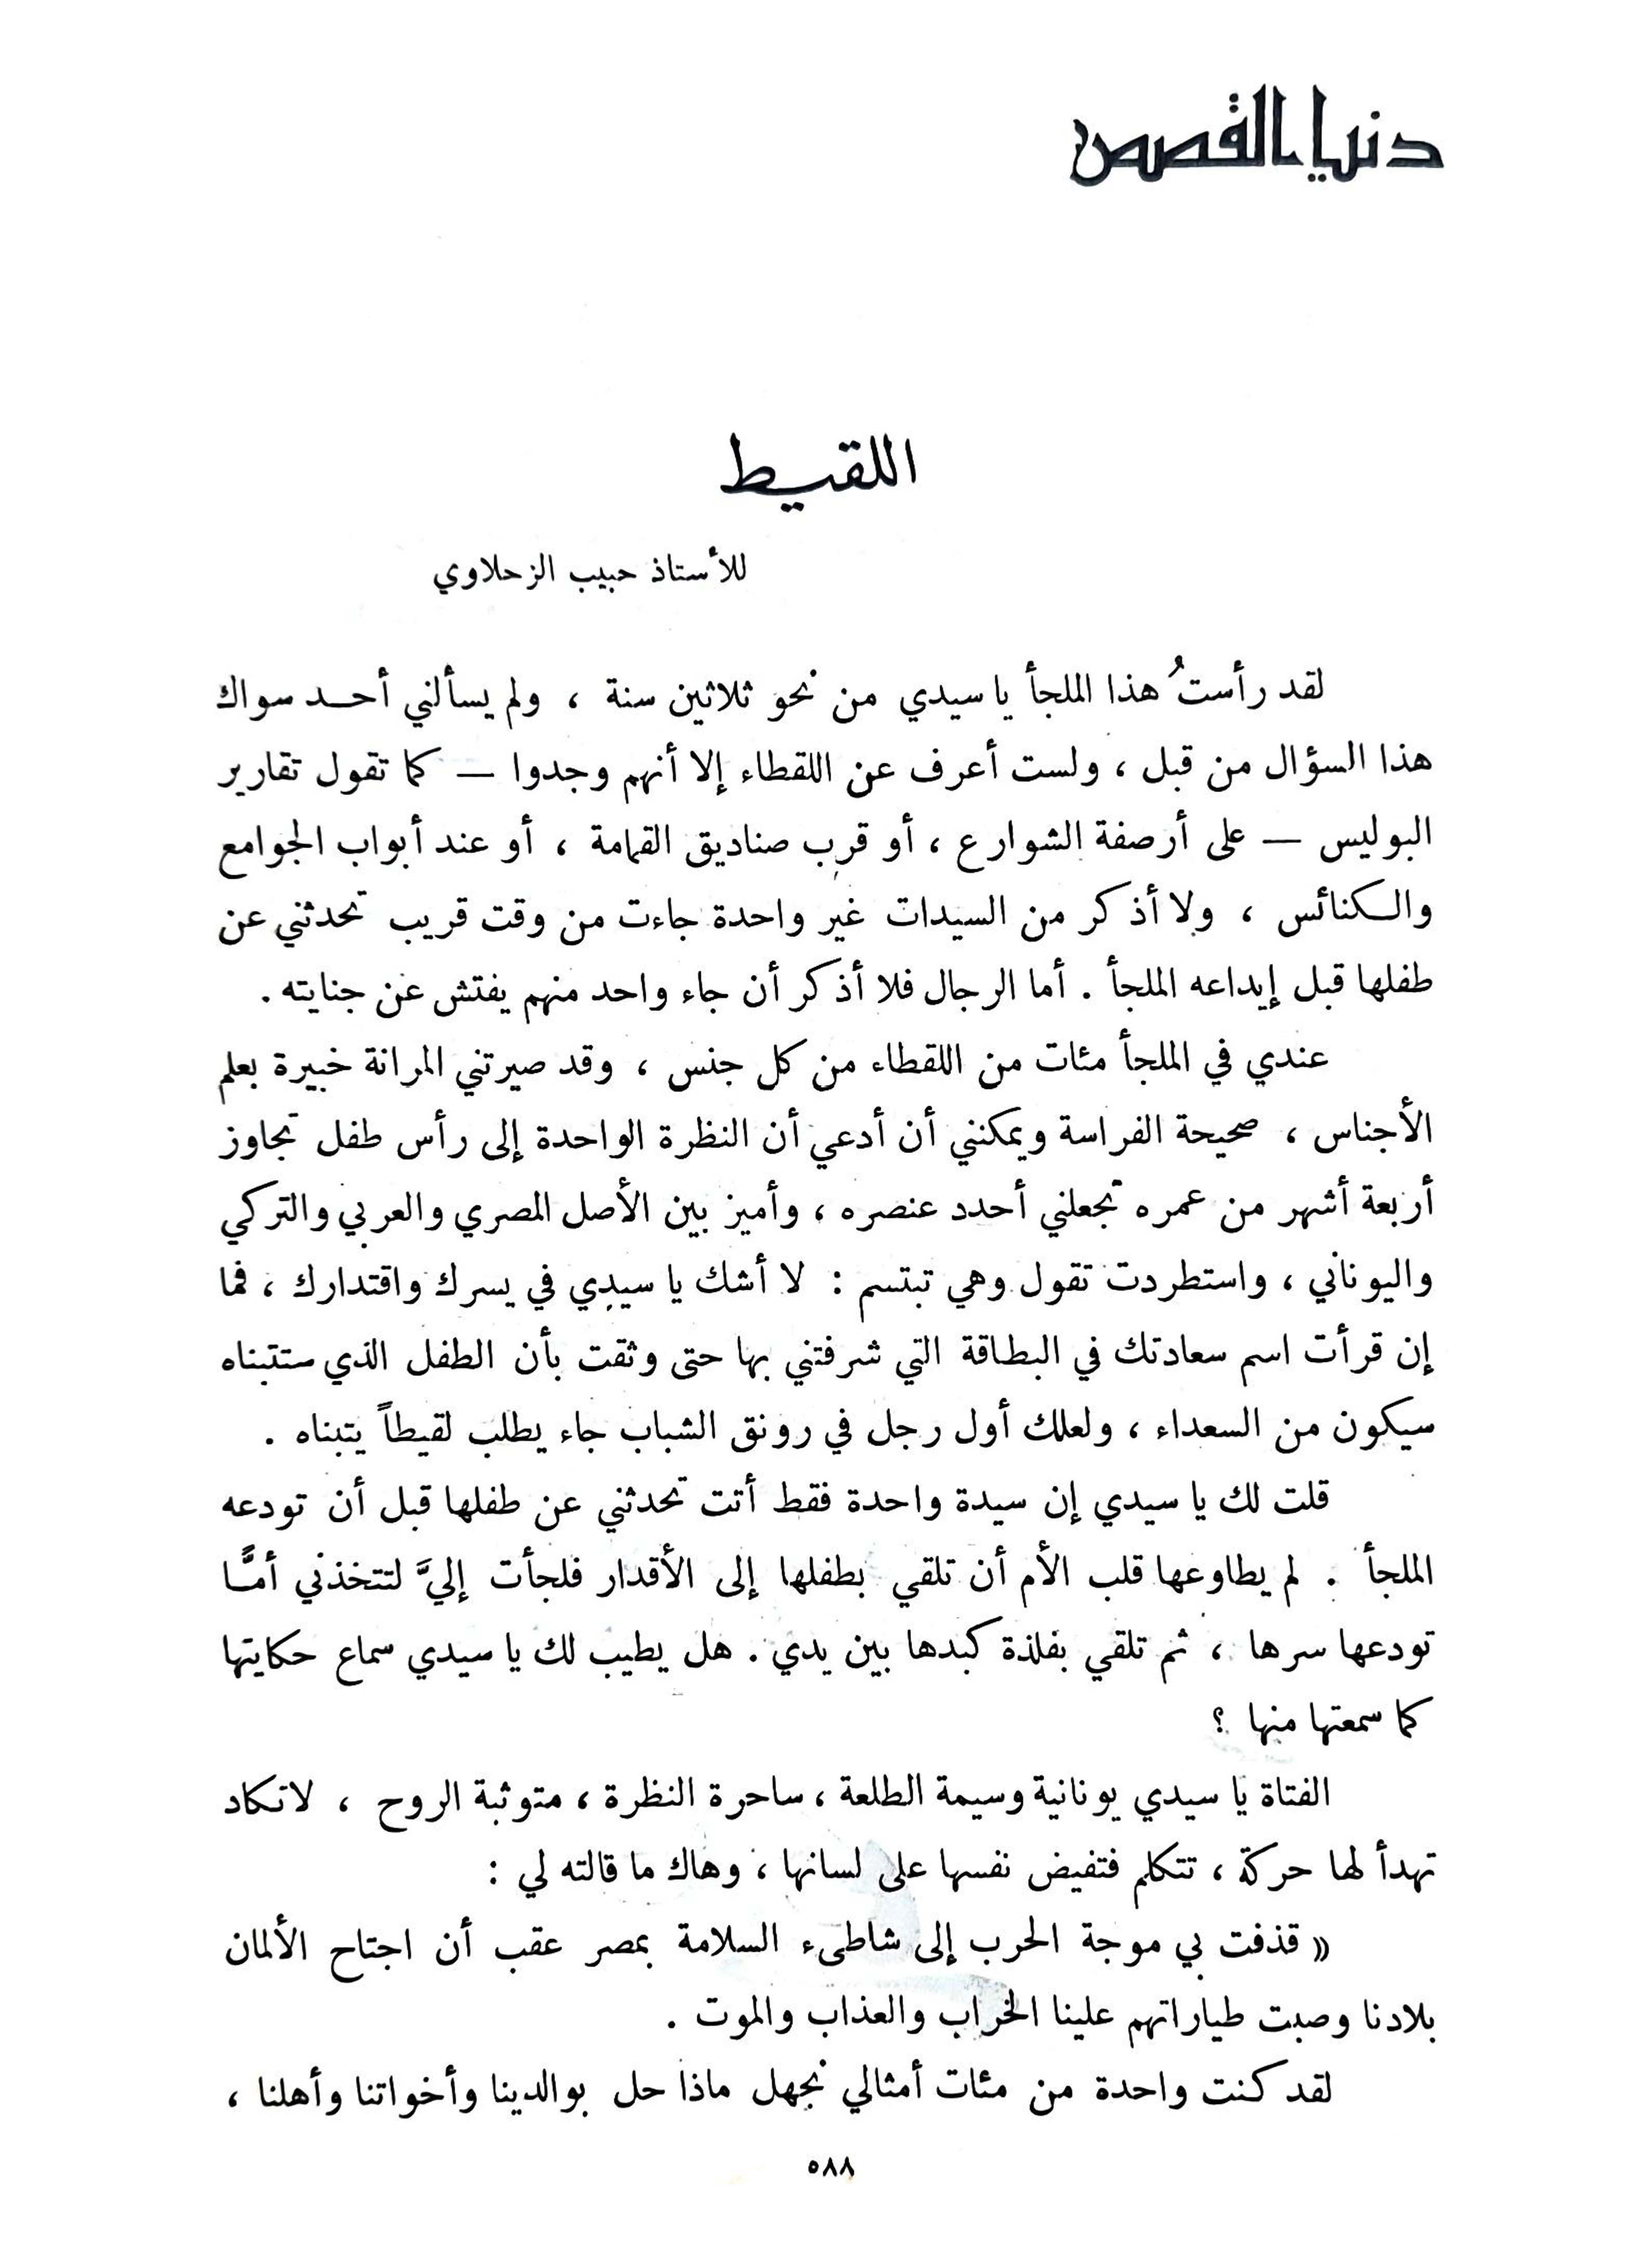 دنيا القصص
اللقيط
للأستاذ حبيب الزحلاوي
لقد رأستُ هذا الملجأ يا سيدي من نحو ثلاثين سنة ، ولم يسألني أحد سواك
هذا السؤال من قبل ، ولست أعرف عن اللقطاء إلا أنهم وجدوا — كما تقول تقارير
البوليس — على أرصفة الشوارع ، أو قرب صناديق القمامة ، أو عند أبواب الجوامع
والكنائس ، ولا أذكر من السيدات غير واحدة جاءت من وقت قريب تحدثني عن
طفلها قبل إيداعه الملجأ . أما الرجال فلا أذكر أن جاء واحد منهم يفتش عن جنايته .
عندي في الملجأ مئات من اللقطاء من كل جنس ، وقد صيرتني المرانة خبيرة بعلم
الأجناس ، صحيحة الفراسة ويمكنني أن أدعي أن النظرة الواحدة إلى رأس طفل تجاوز
أربعة أشهر من عمره تجعلني أحدد عنصره ، وأميز بين الأصل المصري والعربي والتركي
واليوناني ، واستطردت تقول وهي تبتسم : لا أشك يا سيدي في يسرك واقتدارك ، فما
إن قرأت اسم سعادتك في البطاقة التي شرفتني بها حتى وثقت بأن الطفل الذي ستتبناه
سيكون من السعداء ، ولعلك أول رجل في رونق الشباب جاء يطلب لقيطاً يتبناه .
قلت لك يا سيدي إن سيدة واحدة فقط أتت تحدثني عن طفلها قبل أن تودعه
الملجأ . لم يطاوعها قلب الأم أن تلقي بطفلها إلى الأقدار فلجأت إليَّ لتتخذني أمًّا
تودعها سرها ، ثم تلقي بفلذة كبدها بين يدي . هل يطيب لك يا سيدي سماع حكايتها
كما سمعتها منها ؟
الفتاة يا سيدي يونانية وسيمة الطلعة ، ساحرة النظرة ، متوثبة الروح ، لا تكاد
تهدأ لها حركة ، تتكلم فتفيض نفسها على لسانها ، وهاك ما قالته لي :
« قذفت بي موجة الحرب إلى شاطىء السلامة بمصر عقب أن اجتاح الألمان
بلادنا وصبت طياراتهم علينا الخراب والعذاب والموت .
لقد كنت واحدة من مئات أمثالي نجهل ماذا حل بوالدينا وأخواتنا وأهلنا ،
٥٨٨